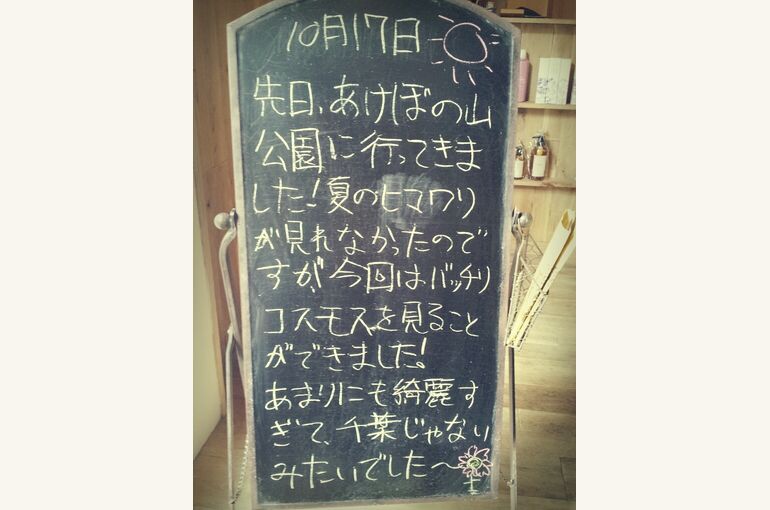 10月17日
先日、あけぼの山
公園に行ってきま
した！夏のヒマワリ
が見れなかったので
すが、今回はバッチリ
コスモスを見ること
ができました！
あまりにも綺麗す
ぎて、千葉じゃない
みたいでした〜